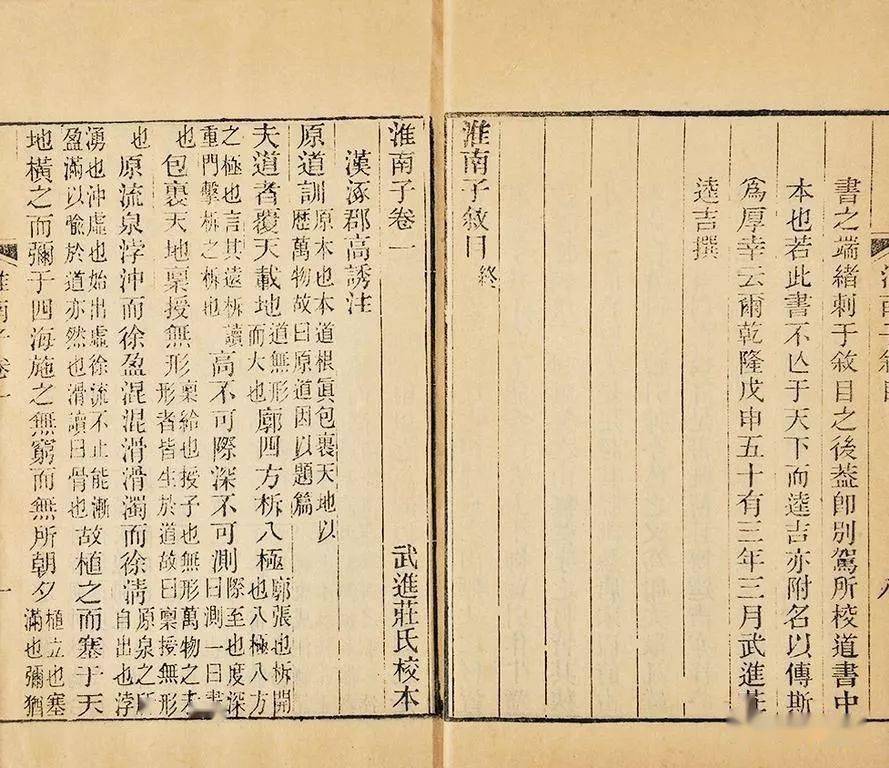 淮南子敘目
八
書之端緒刺于敘目之後葢卽別駕所校道書中
本也若此書不亾于天下而逵吉亦附名以傳斯
爲厚幸云爾乾隆戊申五十有三年三月武進莊
逵吉撰
淮南子敘目終
淮南子卷一 武進莊氏校本
漢涿郡高誘注
原道訓原本也本道根眞包裹天地以歷萬物故曰原道因以題篇
夫道者覆天載地道無形而大也廓四方柝八極廓張也柝開也八極八方
之極也言其遠柝讀重門擊柝之柝也高不可際深不可測際至也度深曰測一曰盡
也包裹天地稟授無形稟給也授予也無形萬物之未形者皆生於道故曰稟授無形
也原流泉浡沖而徐盈混混滑滑濁而徐淸原泉之所自出也浡
湧也沖虛也始出虛徐流不止能漸盈滿以喻於道亦然也滑讀曰骨也故植之而塞于天
地橫之而彌于四海施之無窮而無所朝夕植立也塞滿也彌猶
淮南子卷一
一